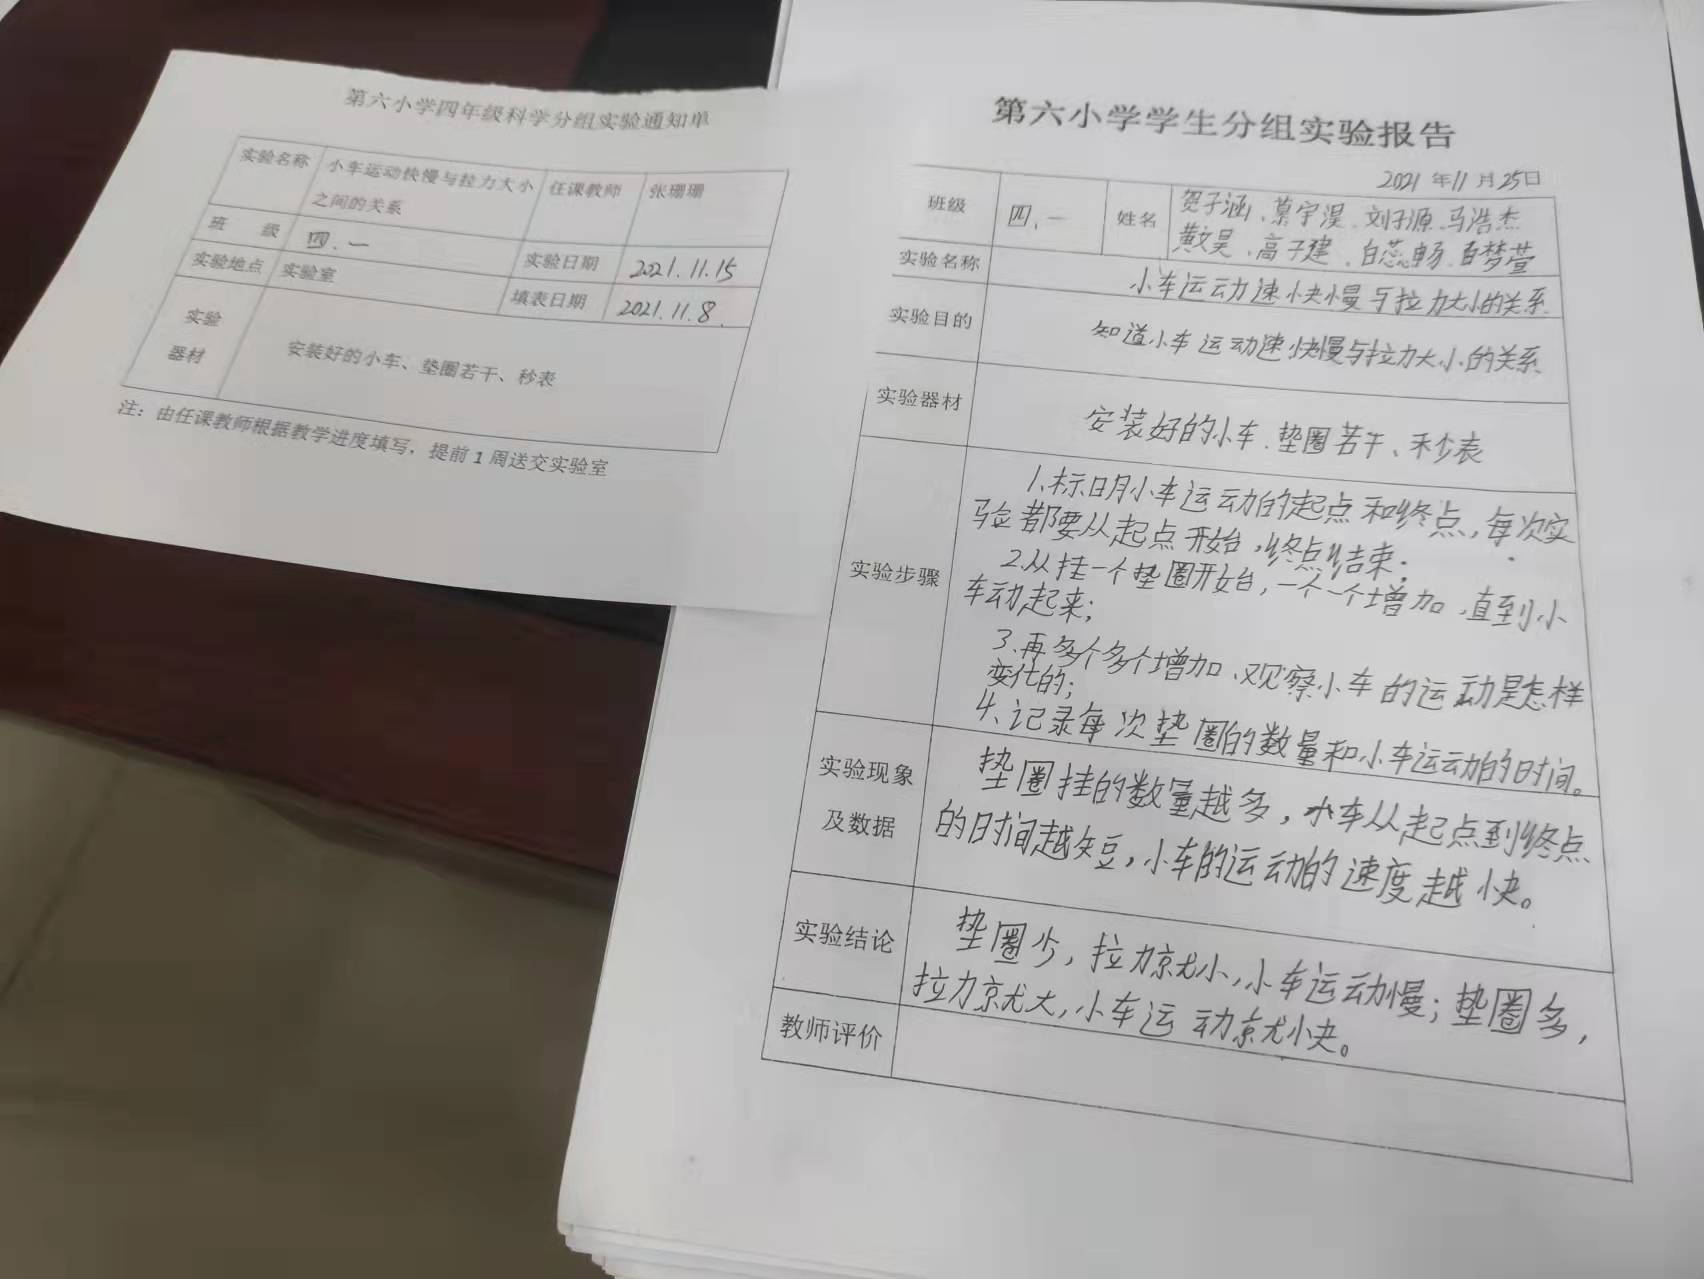 第六小学四年级科学分组实验通知单
实验名称 小车运动快慢与拉力大小 任课教师 张珊珊
之间的关系
班 级 四.一 实验日期 2021.11.15
实验地点 实验室 填表日期 2021.11.8.
实验
器材 安装好的小车、垫圈若干、秒表
注：由任课教师根据教学进度填写，提前1周送交实验室
第六小学学生分组实验报告
2021年11月25日
班级 四.一 姓名 贺子涵、慕宇淏、刘子源、马浩杰
黄文昊、高子建、白蕊畅、白梦萱
实验名称 小车运动速快慢与拉力大小的关系
实验目的 知道小车运动速快慢与拉力大小的关系
实验器材 安装好的小车、垫圈若干、秒表
实验步骤 1、标明小车运动的起点和终点，每次实
验都要从起点开始，终点结束；
2.从挂一个垫圈开始，一个一个增加，直到小
车动起来；
3.再多个多个增加、观察小车的运动是怎样
变化的；
4、记录每次垫圈的数量和小车运动的时间。
实验现象 垫圈挂的数量越多，小车从起点到终点
及数据 的时间越短，小车的运动的速度越快。
实验结论 垫圈少，拉力就小，小车运动慢；垫圈多，
拉力就大，小车运动就快。
教师评价